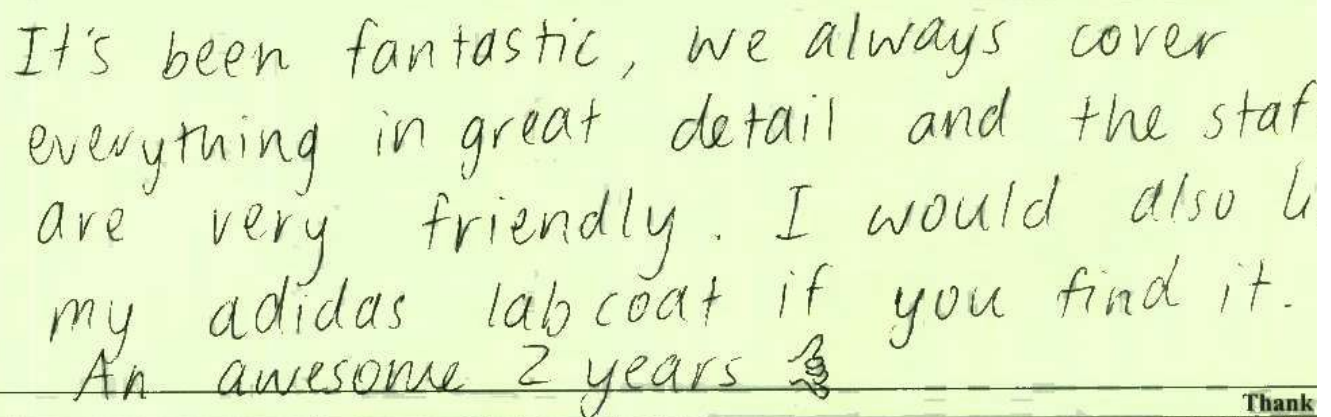 It's been fantastic, we always cover
everything in great detail and the staf
are very friendly. I would also li
my adidas lab coat if you find it.
An awesome 2 years
Thank